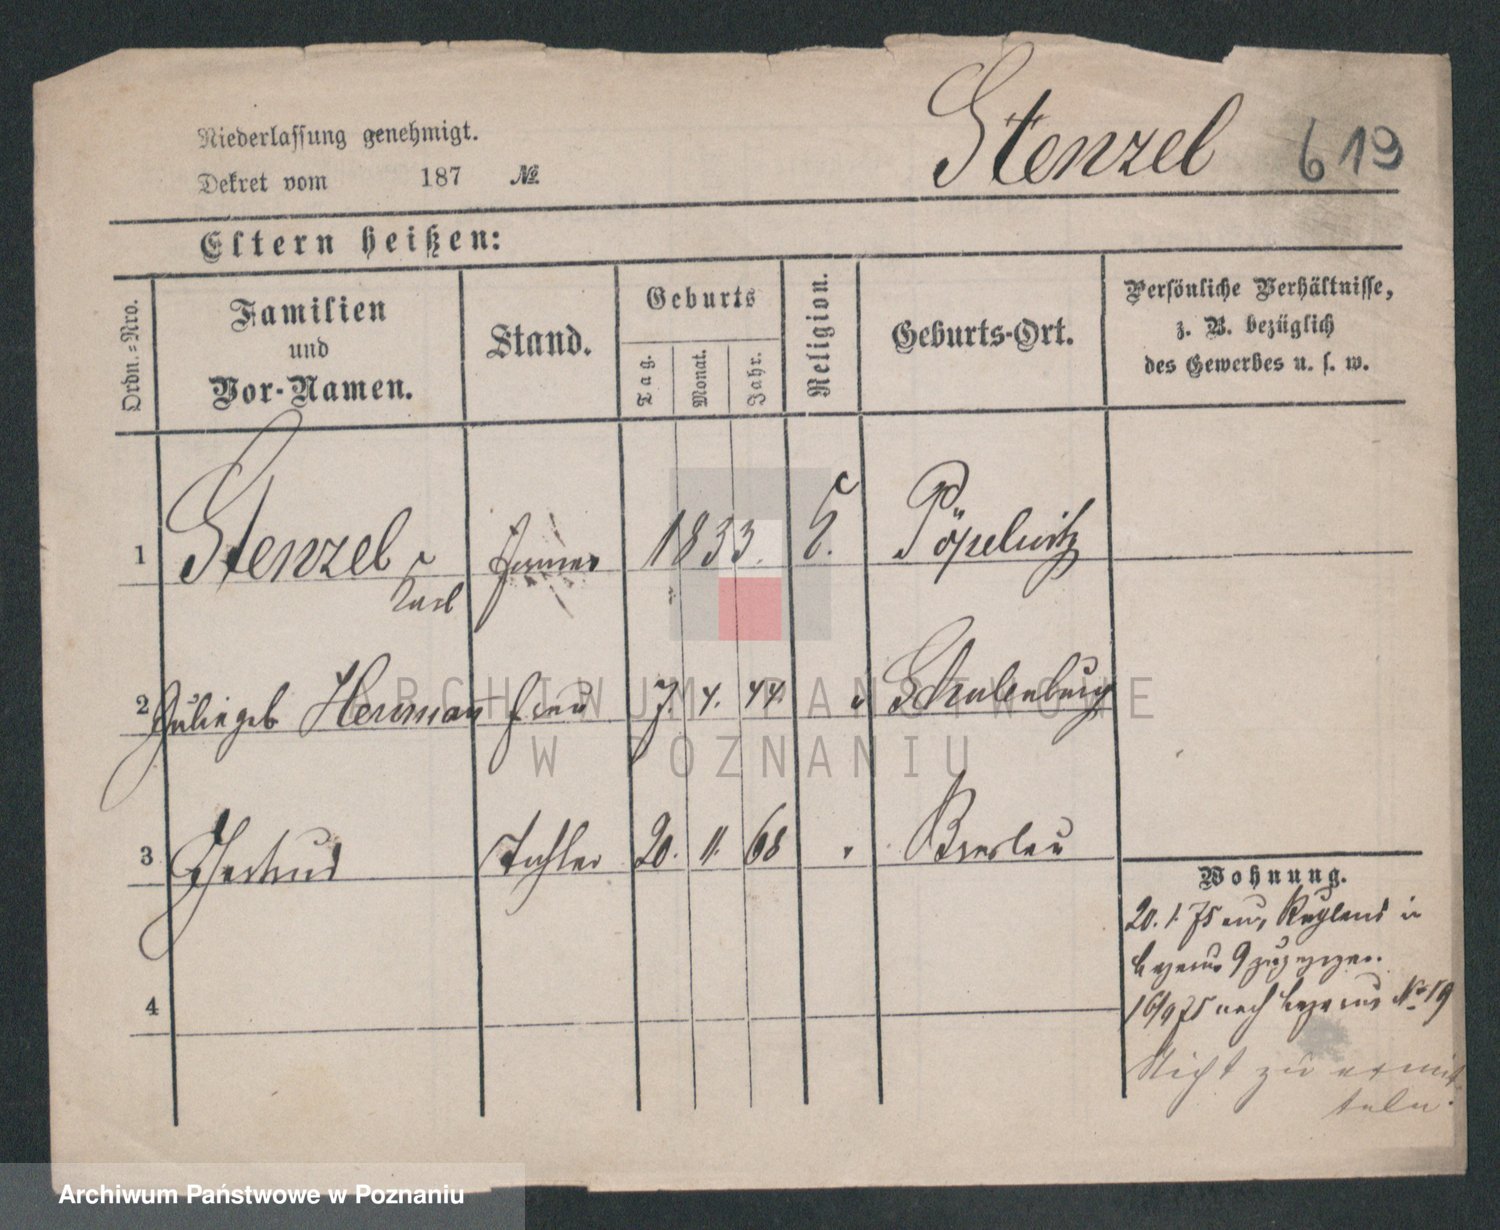 Stenzel 619
Niederlassung genehmigt.
Dekret vom 187 №
Eltern heißen:
Ordn.-Nro.
Familien
und
Vor-Namen.
Stand.
Geburts
Tag.
Monat.
Jahr.
Religion.
Geburts-Ort.
Persönliche Verhältnisse,
z. B. bezüglich
des Gewerbes u. s. w.
1 Stenzel 1833. E. Pöpelwitz
Carl
2 geb Herrman Frau 7. 4. 44. " Schulenburg
3 Gertrud Tochter 20. 11. 68 " Breslau
4
Wohnung.
20. 1. 75 aus in
9 zugezogen.
16/9 75 nach No 19
Nicht zu ermit-
teln.
ARCHIWUM PAŃSTWOWE
W POZNANIU
Archiwum Państwowe w Poznaniu